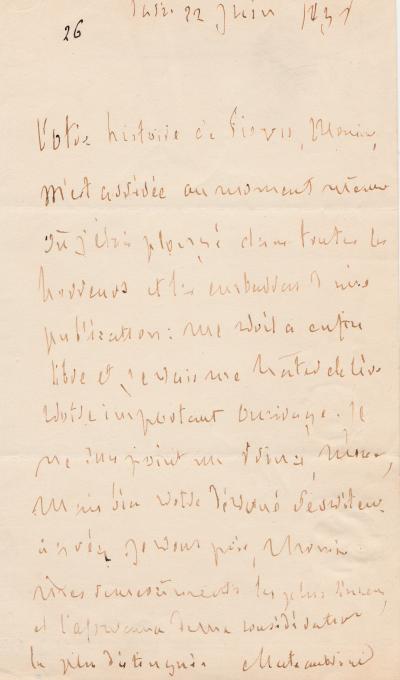 22 Juin
26
Votre histoire de Monsieur,
m'est arrivée au moment même
où j'étais plongé dans toutes les
horreurs et les embarras d'une
publication: me voilà enfin
libre et je vais me hâter de lire
votre important ouvrage. Je
ne suis point un Monsieur,
mais bien votre dévoué serviteur
agréez je vous prie, Monsieur
mes remerciements les plus sincères,
et l'assurance de ma considération
la plus distinguée. Chateaubriand